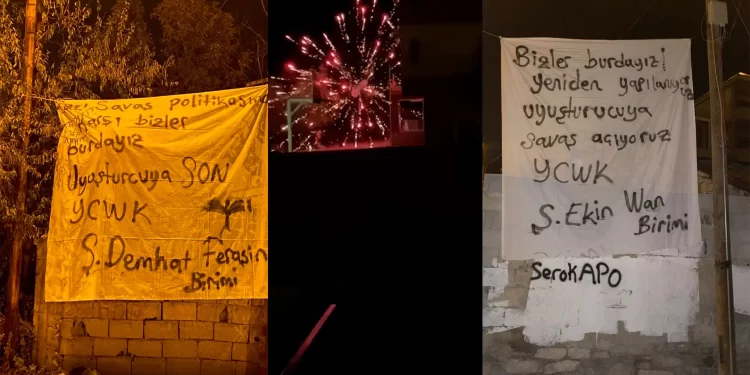 Savaş politikasına
Karşı bizler
burdayız
Uyuşturcuya SON
YCWK
Ş. Demhat Feraşin
Birimi
Bizler burdayız!
yeniden yapılanıyoruz
uyuşturucuya
savaş açıyoruz
YCWK
Ş. Ekin Wan
Birimi
Serok APO